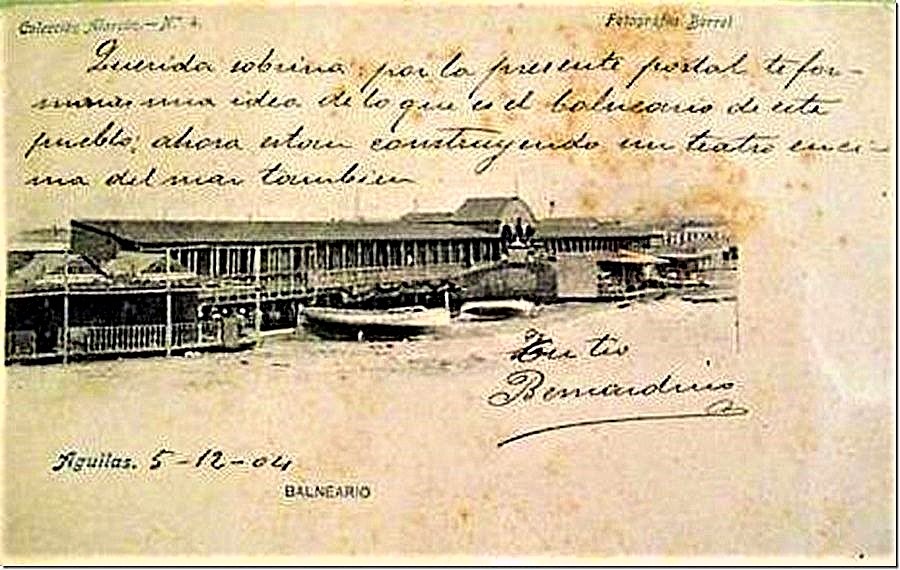 Colección Alarcón.— N.º 4.
Fotografías Borrel
Querida sobrina: por la presente postal te for-
maras una idea de lo que es el balneario de este
pueblo; ahora estan construyendo un teatro enci-
ma del mar tambien
Tu tio
Bernardino
Aguilas. 5-12-04
BALNEARIO